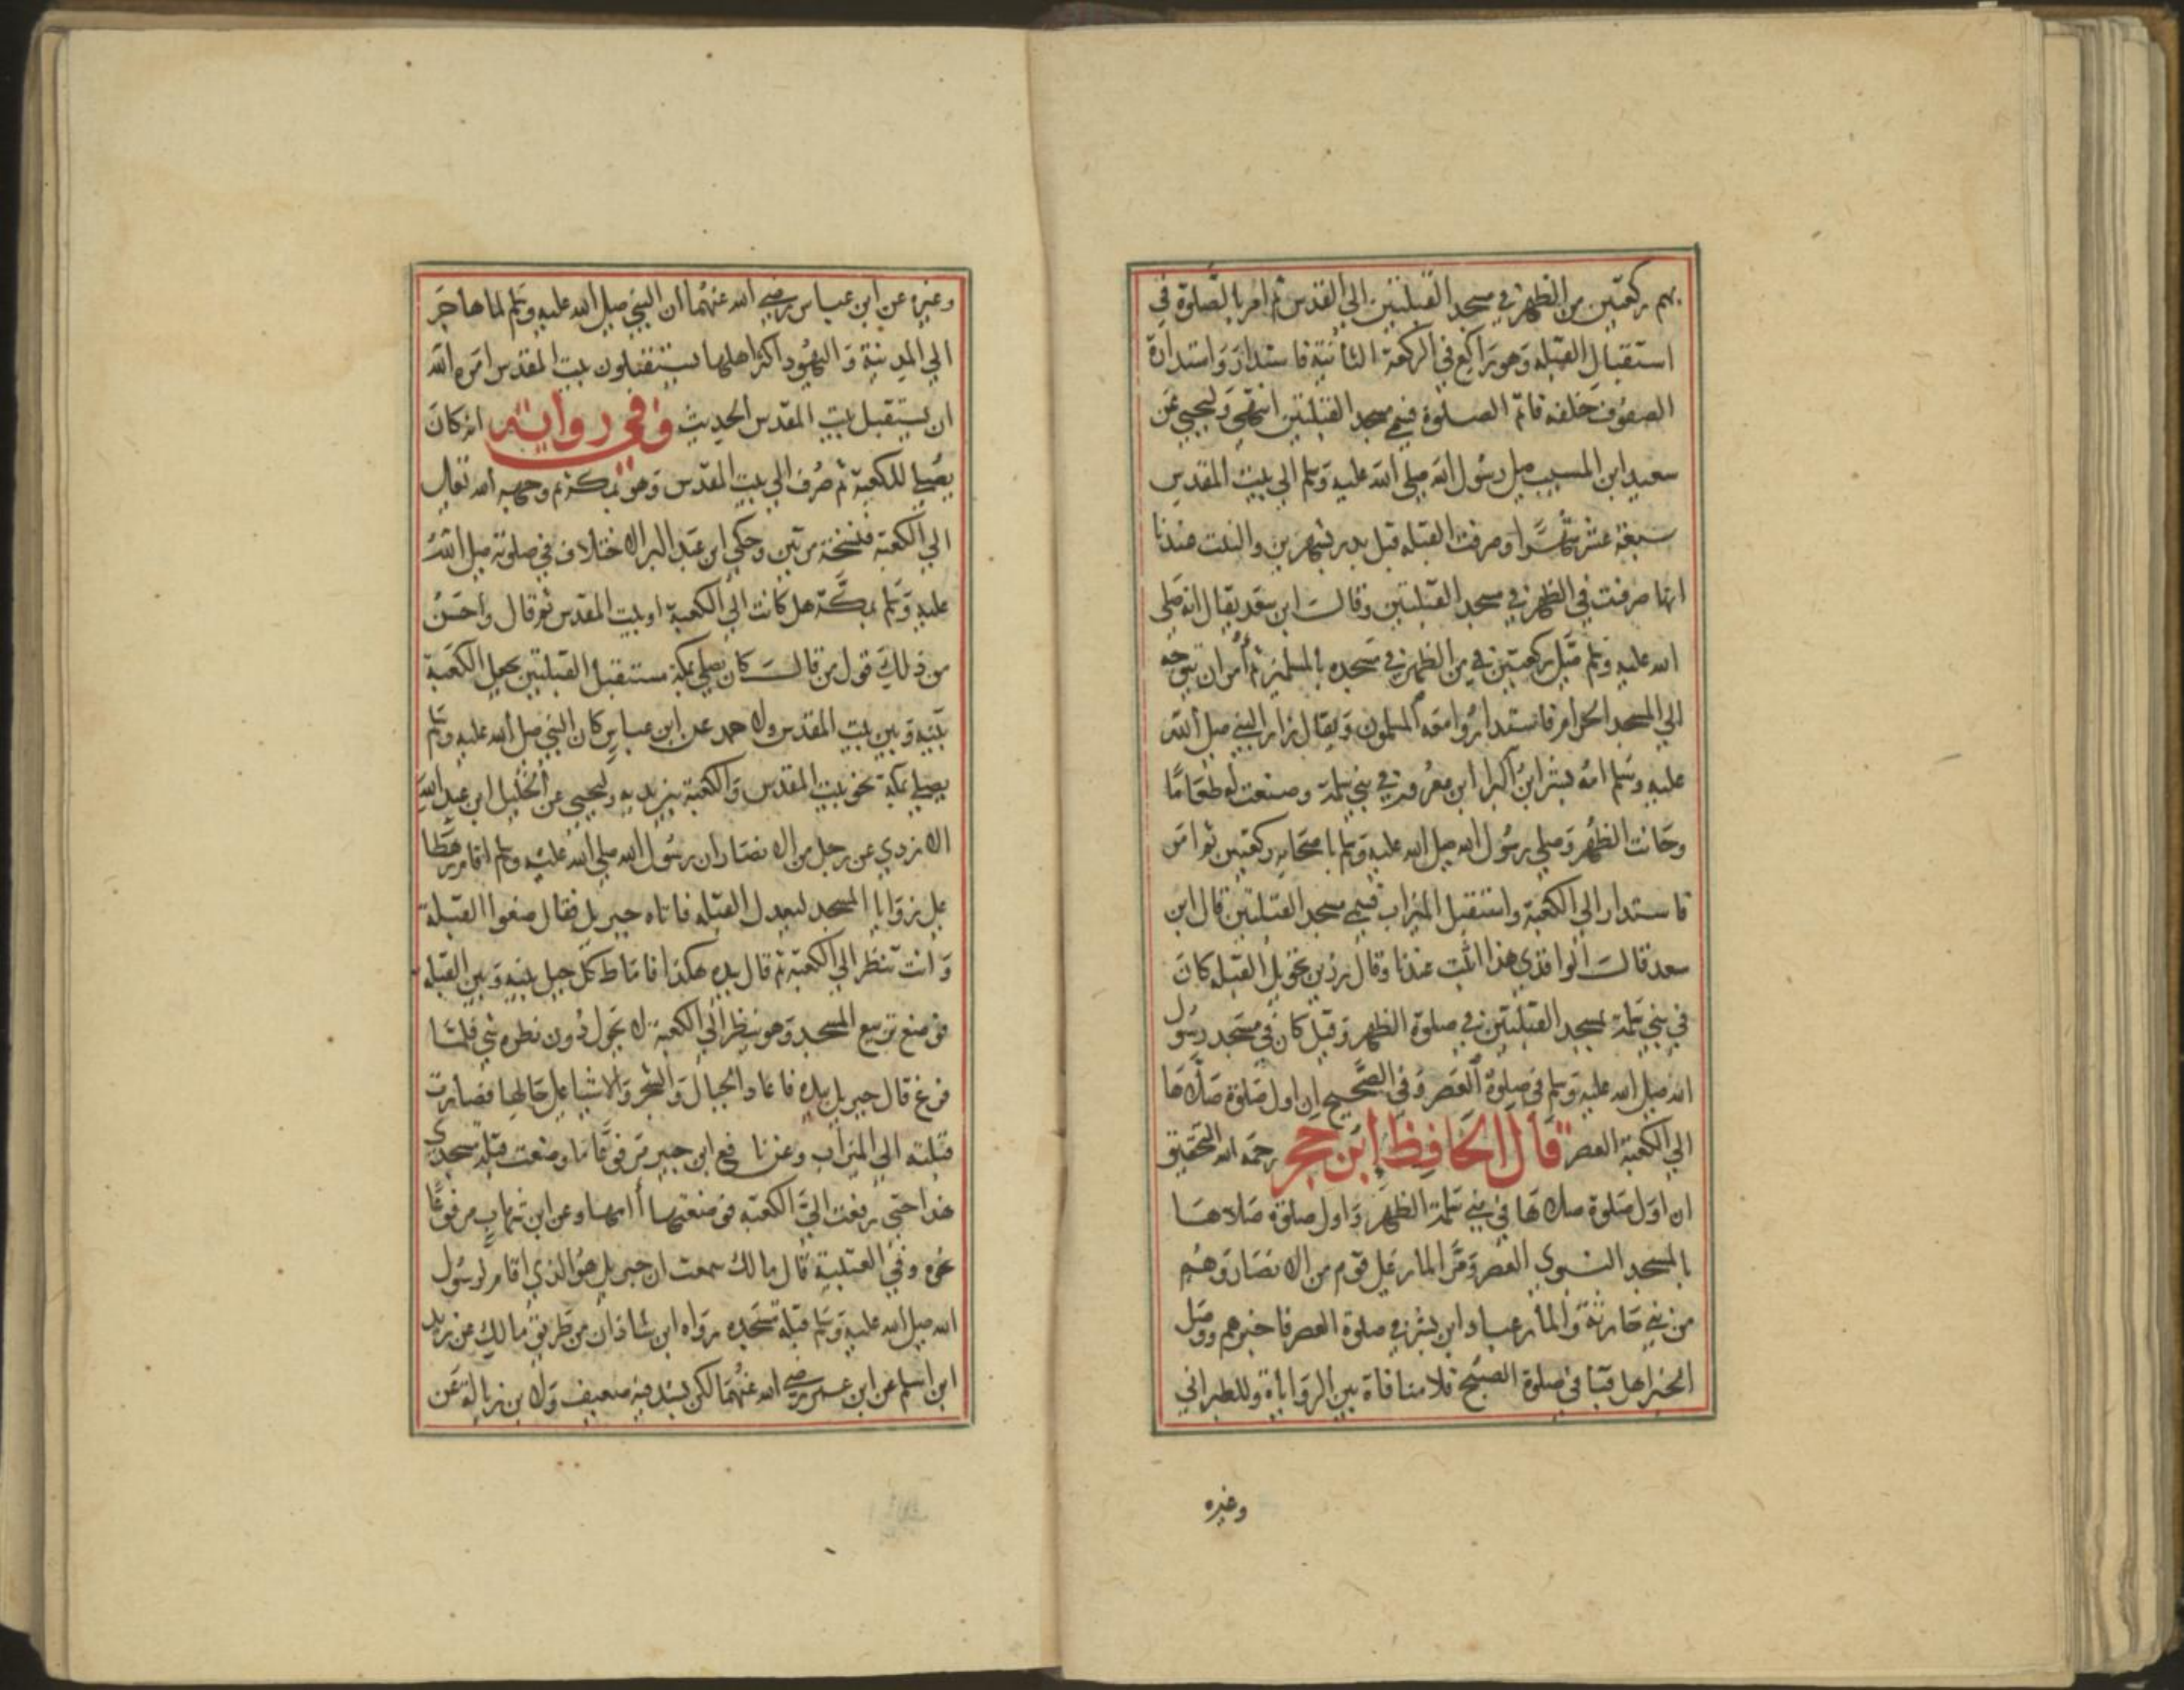 بهم ركعتين من الظهر في مسجد القبلتين الي القدس ثم امر بالصلوة في
استقبال القبله وهو راكع في الركعة الثانية فاستدار واستدارة
الصفوف خلفه فاتم الصلوة فسمي مسجد القبلتين انتهي وليحيي عن
سعيد ابن المسيب صلي رسول الله صلي الله عليه وسلم الي بيت المقدس
سبعة عشر شهرا وصرفت القبله قبل بدر بشهرين والثبت عندنا
انها صرفت في الظهر في مسجد القبلتين وقالت ابن سعد يقال انه صلي
الله عليه وسلم صلي ركعتين من الظهر في مسجده بالمسلمين ثم أمر ان يتوجه
الي المسجد الحرام فاستدار وا معه المسلمون ويقال زار النبي صلي الله
عليه وسلم ام بشر ابن البرا ابن معرور في بني سلمة وصنعت له طعاما
وحانت الظهر وصلي رسول الله صلي الله عليه وسلم باصحابه ركعتين ثم امر
فاستدار الي الكعبة واستقبل الميزاب فسمي مسجد القبلتين قال ابن
سعد قالت الواقدي هذا اثبت عندنا وقال رزين تحويل القبله كان
في بني سلمة بمسجد القبلتين في صلوة الظهر وقيل كان في مسجد رسول
الله صلي الله عليه وسلم في صلوة العصر وفي الصحيح ان اول صلوة صلاها
الي الكعبة العصر قال الحافظ ابن حجر رحمه الله التحقيق
ان اول صلوة صلاها في بني سلمة الظهر واول صلوة صلاها
بالمسجد النبوي العصر ومر المار علي قوم من الانصار وهم
من بني حارثة والمار عباد ابن بشر في صلوة العصر فاخبرهم ووصل
الخبر اهل قبا في صلوة الصبح فلا منافاة بين الرواياة وللطبراني
وغيره
وغيره عن ابن عباس رضي الله عنهما ان النبي صلي الله عليه وسلم لما هاجر
الي المدينة واليهود اكثر اهلها يستقبلون بيت المقدس امره الله
ان يستقبل بيت المقدس الحديث وفي رواية انه كان
يصلي للكعبة ثم صرف الي بيت المقدس وهو بمكة ثم وجهه الله تعالي
الي الكعبة فنسخة مرتين وحكي ابن عبد البر الاختلاف في صلوته صلي الله
عليه وسلم بمكة هل كانت الي الكعبة او بيت المقدس ثم قال واحسن
من ذلك قول من قالت كان يصلي بمكة مستقبل القبلتين يجعل الكعبة
بينه وبين بيت المقدس ولاحمد عن ابن عباس كان النبي صلي الله عليه وسلم
يصلي بمكة نحو بيت المقدس والكعبة بين يديه وليحيي عن الخليل ابن عبد الله
الازدي عن رجل من الانصار ان رسول الله صلي الله عليه وسلم اقام رهطا
علي زوايا المسجد ليعدل القبله فاتاه جبريل فقال ضعوا القبلة
وانت تنظر الي الكعبة ثم قال بيده هكذا فاماط كل جبل بينه وبين القبله
فوضع تربيع المسجد وهو ينظر الي الكعبة لا يحول دون نظره شي فلما
فرغ قال جبريل بيده فاعاد الجبال والشجر والاشيا علي حالها فصارت
قبلته الي الميزاب وعن نافع ابن جبير مرفوعا ما وضعت قبلة مسجدي
هذا حتي رفعت الي الكعبة فوضعتها أامها وعن ابن شهاب مرفوعا
نحوه وفي العتبية قال مالك سمعت ان جبريل هو الذي اقام لرسول
الله صلي الله عليه وسلم قبلة مسجده رواه ابن شاذان من طريق مالك عن زيد
ابن اسلم عن ابن عمر رضي الله عنهما لكن بسند فيه ضعيف ولابن زبالة عن